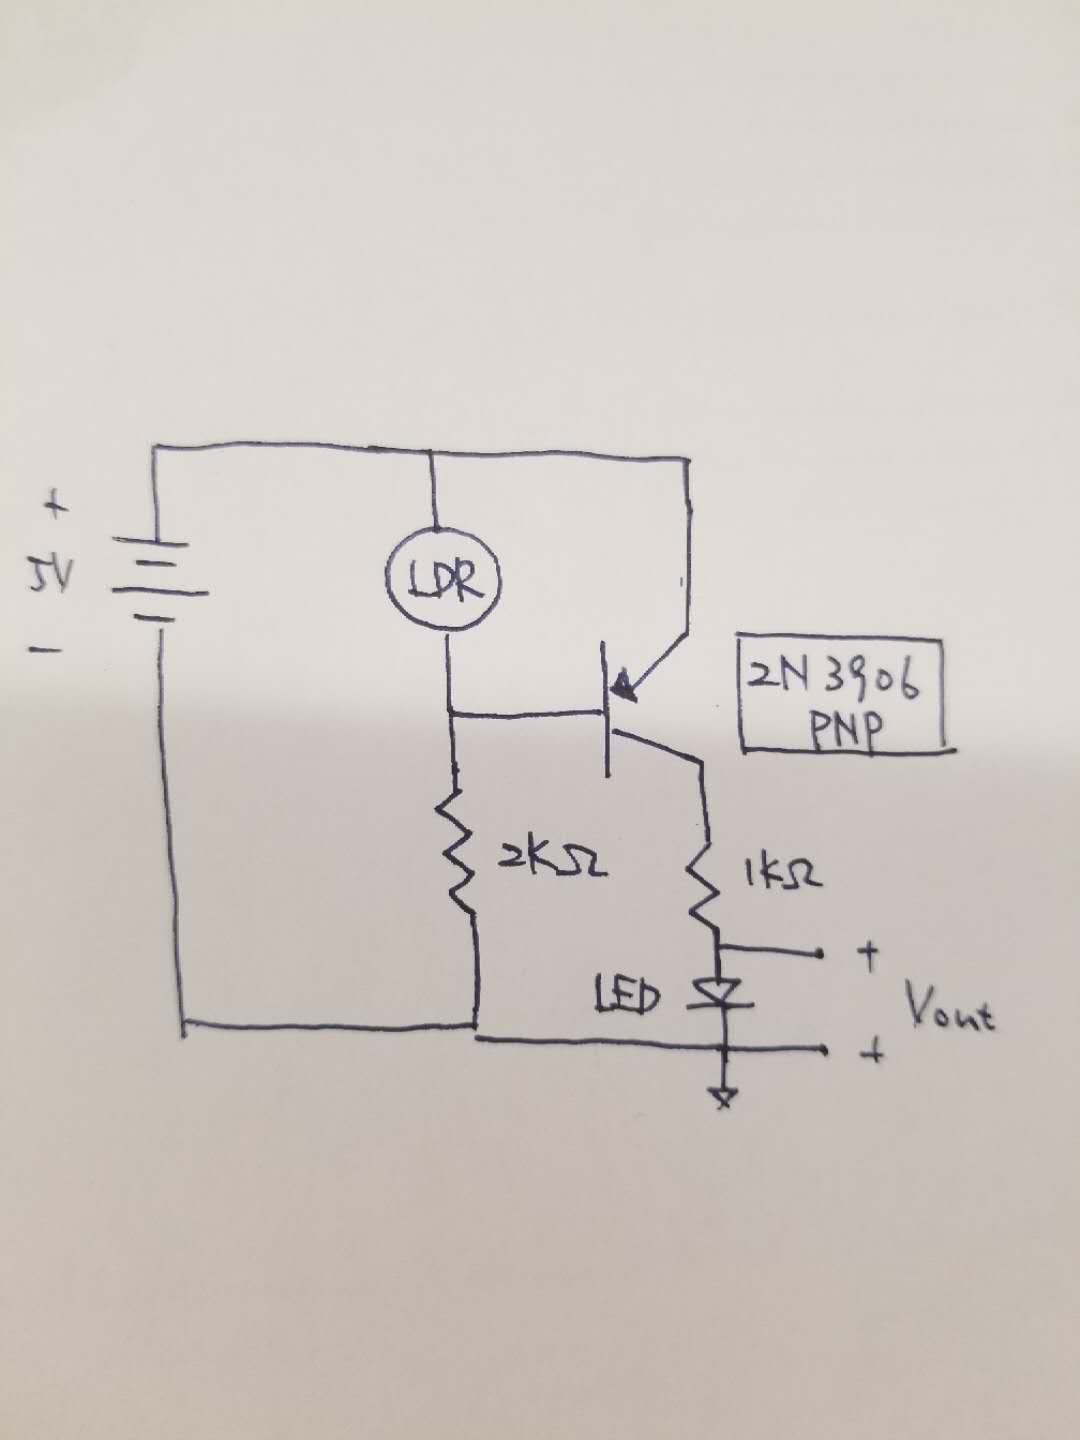 +
5V
-
LDR
2N3906
PNP
2KΩ
1KΩ
+
LED
Vout
+